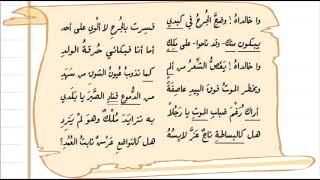 وا خالداهُ! وضجَّ الجُرحُ في كبدي فسِرتُ بالجُرحِ لا ألوي على أحد
يبكون منك- وقد ناحوا- على مَلِكٍ أما أنا فبكائي حُرقةُ الولدِ
وا خالداهُ! وغصَّ الشِّعرُ من ألمٍ كما تذوبُ عيونُ الشوق من سَهَدِ
يخطر الموتُ فوقَ البيدِ عاصفةً من الدُّموعِ فنارِ الصَّبرَ يا بَلدي
أراك رُغمَ ضبابِ الموتِ يا رَجُلًا به تزايدَ مُلْكٌ وهو لم يَزِدِ
هل كالبساطةِ تاجٌ عزَّ لابسُهُ هل كالتواضعِ عَرْشٌ ثابتُ العُمُدِ؟